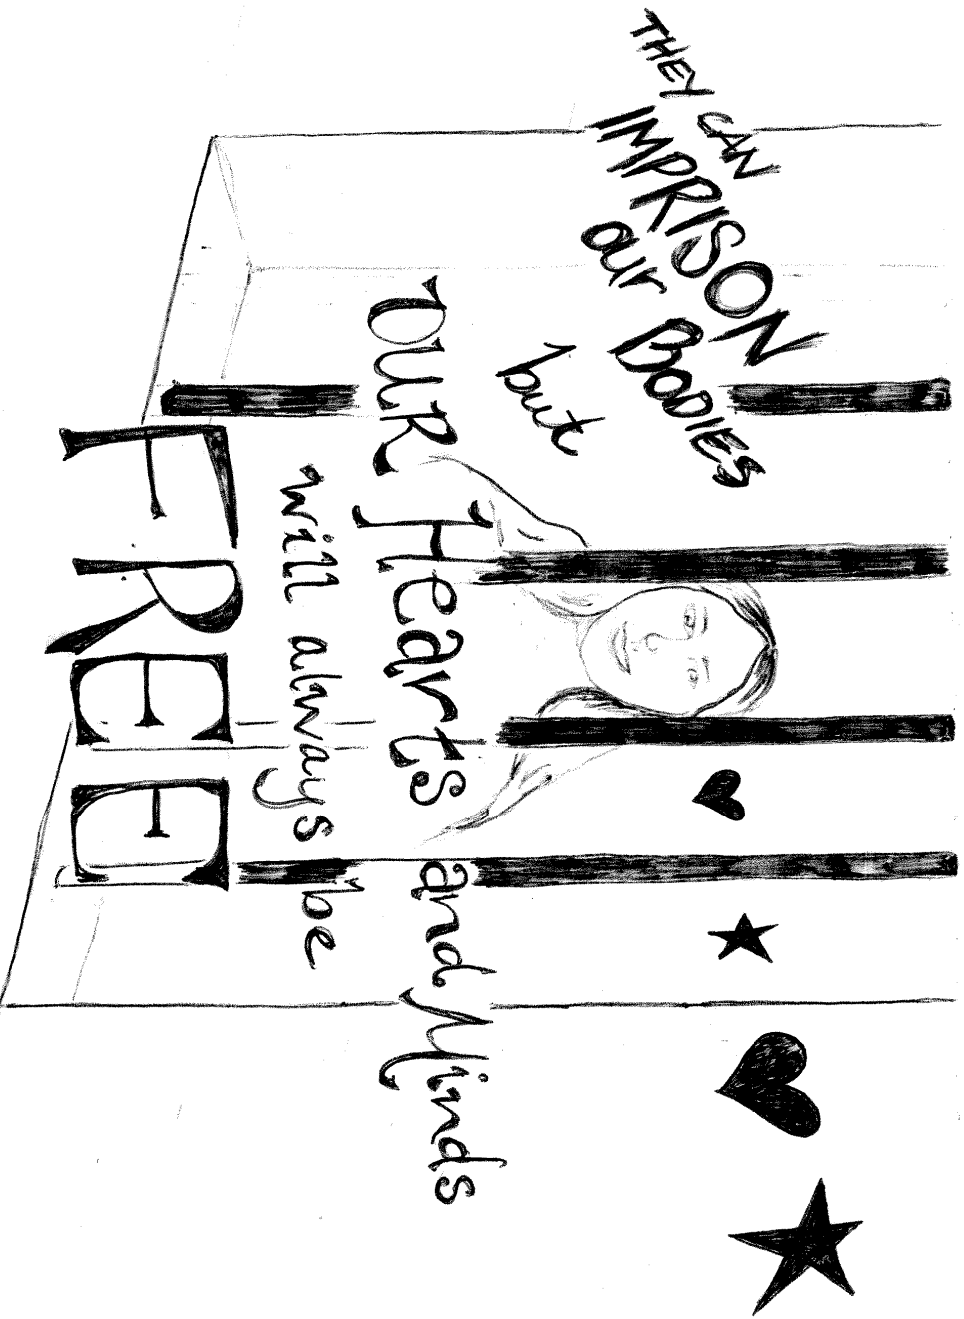 THEY CAN
IMPRISON
our BODIES
but
OUR Hearts and Minds
will always be
FREE